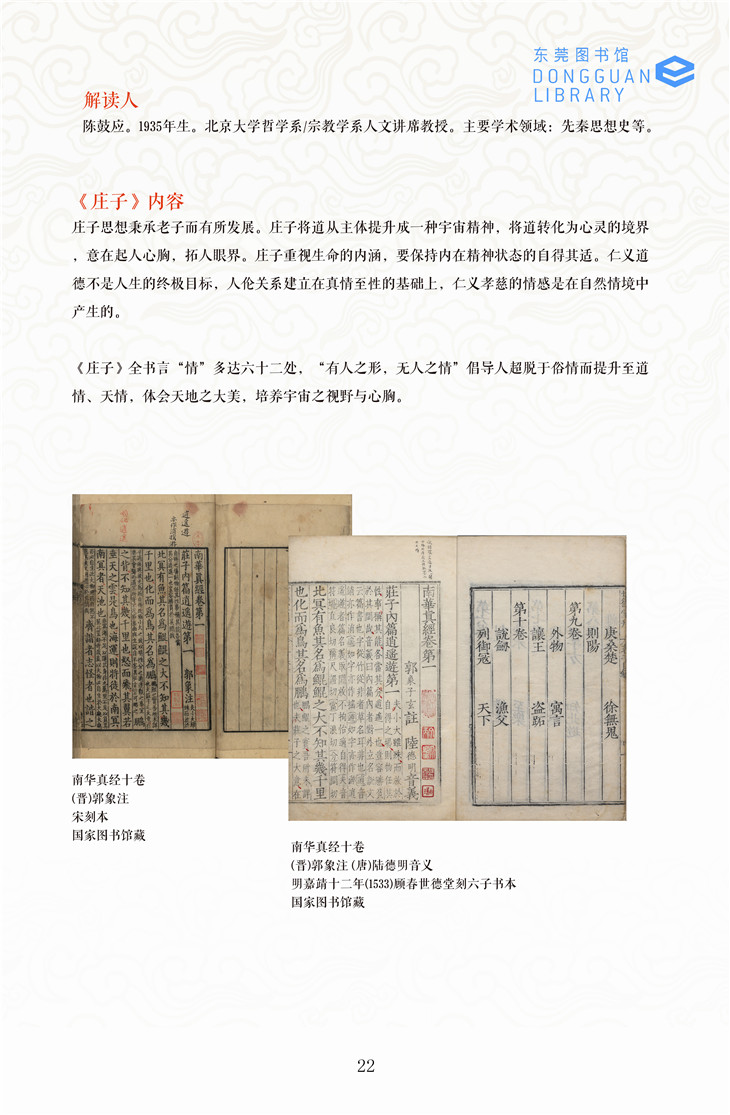 东莞图书馆
DONGGUAN
LIBRARY
解读人
陈鼓应。1935年生。北京大学哲学系/宗教学系人文讲席教授。主要学术领域：先秦思想史等。
《庄子》内容
庄子思想秉承老子而有所发展。庄子将道从主体提升成一种宇宙精神，将道转化为心灵的境界
，意在起人心胸，拓人眼界。庄子重视生命的内涵，要保持内在精神状态的自得其适。仁义道
德不是人生的终极目标，人伦关系建立在真情至性的基础上，仁义孝慈的情感是在自然情境中
产生的。
《庄子》全书言“情”多达六十二处，“有人之形，无人之情”倡导人超脱于俗情而提升至道
情、天情，体会天地之大美，培养宇宙之视野与心胸。
逍遥遊
南華真經卷第一
莊子內篇逍遥遊第一 郭象注
北冥有魚其名為鯤鯤之大不知其幾
千里也化而為鳥其名為鵬
之背不知其幾千里也怒而飛其翼若
垂天之雲是鳥也海運則將徙於南冥
南冥者天池也
齊諧者志怪者也諧之
南华真经十卷
(晋)郭象注
宋刻本
国家图书馆藏
庚桑楚 徐無鬼
則陽
第九卷
外物 寓言
讓王 盗跖
第十卷
說劒 漁父
列御寇 天下
南華真經卷第一
郭象子玄註 陸德明音義
莊子內篇逍遥遊第一
北冥有魚其名為鯤鯤之大不知其幾千里
也化而為鳥其名為鵬
南华真经十卷
(晋)郭象注 (唐)陆德明音义
明嘉靖十二年(1533)顾春世德堂刻六子书本
国家图书馆藏
22